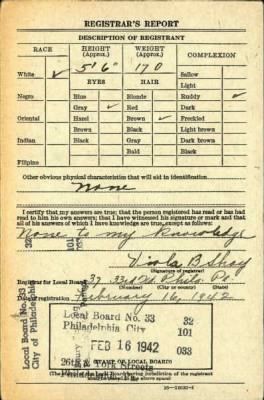 REGISTRAR'S REPORT
DESCRIPTION OF REGISTRANT
RACE HEIGHT (Approx.) WEIGHT (Approx.) COMPLEXION
5' 6" 170
White ✓ Sallow
EYES HAIR Light
Negro Blue Blonde Ruddy ✓
Gray ✓ Red Dark
Oriental Hazel Brown ✓ Freckled
Brown Black Light brown
Indian Black Gray Dark brown
Bald Black
Filipino
Other obvious physical characteristics that will aid in identification
None
I certify that my answers are true; that the person registered has read or has had
read to him his own answers; that I have witnessed his signature or mark and that
all of his answers of which I have knowledge are true, except as follows:
None to my knowledge
Viola B Shay
(Signature of registrar)
Registrar for Local Board 37 Phila Pa
(Number) (City or county) (State)
Date of registration February 16, 1942
Local Board No. 33
City of Philadelphia
Local Board No. 33 32
Philadelphia City 101
FEB 16 1942 033
26th & York Streets
Philadelphia
(STAMP OF LOCAL BOARD)
(The stamp of the Local Board having jurisdiction of the registrant
shall be placed in the above space)